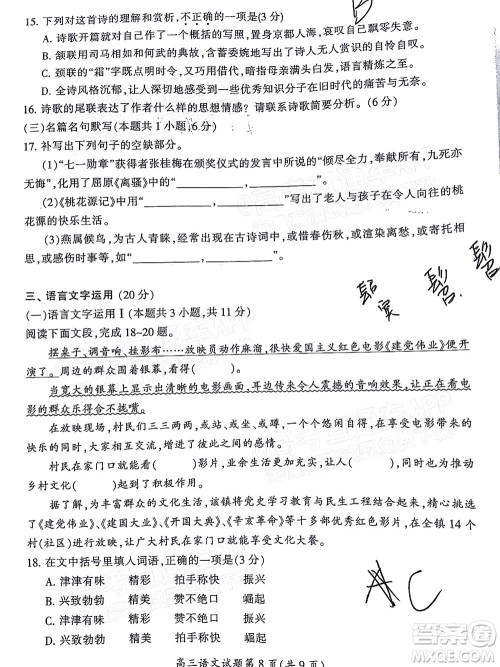 15. 下列对这首诗的理解和赏析,不正确的一项是(3分)
A. 诗歌开篇就对自己的行为予以勾勒,置身京都人海,哀叹自己飘零失意。
B. 颔联使用司马相如和何武的典故,含蓄委婉地道出诗人无人赏识的情形。
C. 颈联的“霜”字既点明时令,又巧用代指,暗指亲人生活艰难,语言精炼之至。
D. 全诗风格沉郁,让人深切地感受到优秀知识分子沦落市井的痛苦与无奈。
16. 诗歌的尾联表达了作者什么样的思想情感? 请联系诗歌简要分析。(6分)
(三)名篇名句默写(本题共1小题,6分)
17. 补写出下列句子中的空缺部分。
(1)“七一勋章”获得者张桂梅在颁奖仪式的发言中所说的“倾尽全力,奉献所有,九死亦无悔”,化用了屈原《离骚》中的“________,________”。
(2)《桃花源记》中,“________,________”写出了老人与孩子在令人向往的桃花源的快乐生活。
(3)燕属候鸟,为古人青睐,经常出现在古诗词中,或惜春伤秋,或渲染离愁,或寄托相思,或感伤时事等,如“________,________”。
三、语言文字运用(20分)
(一)语言文字运用Ⅰ(本题共3小题,共11分)
阅读下面文段,完成18~20题。
摆桌子、调音响、挂影布……放映员动作麻溜,很快爱国主义红色电影《建党伟业》便开演了。当宽大的银幕上显示出清晰的电影画面,耳边传来令人震撼的音响效果,让热爱电影的群众乐得合不拢嘴。
在放映现场,村民们三五成群,或站、或坐、或蹲,在家门口观看电影,在享受电影带来的快乐的同时,也学习了党史知识。大家看得(　),对放映的影片(　)。
村民在家门口看(　)影片,不但丰富了精神文化生活,提振了精气神,也推动了乡村文化(　)。
据了解,为丰富群众的文化生活,该镇将党史学习教育与民生工程相结合,陆续播放了《建党伟业》《建国大业》《开国大典》《辛亥革命》等十多部优秀红色影片,在全镇14个村(社区)进行巡回放映,让广大村民在家门口就能享受电影文化大餐。
18. 在文中括号里填入词语,正确的一项是(3分)
A. 津津有味　精彩　拍手称快　振兴
B. 兴致勃勃　精美　赞不绝口　崛起
C. 津津有味　精美　赞不绝口　振兴
D. 兴致勃勃　精彩　拍手称快　崛起
高三语文试题第8页(共9页)